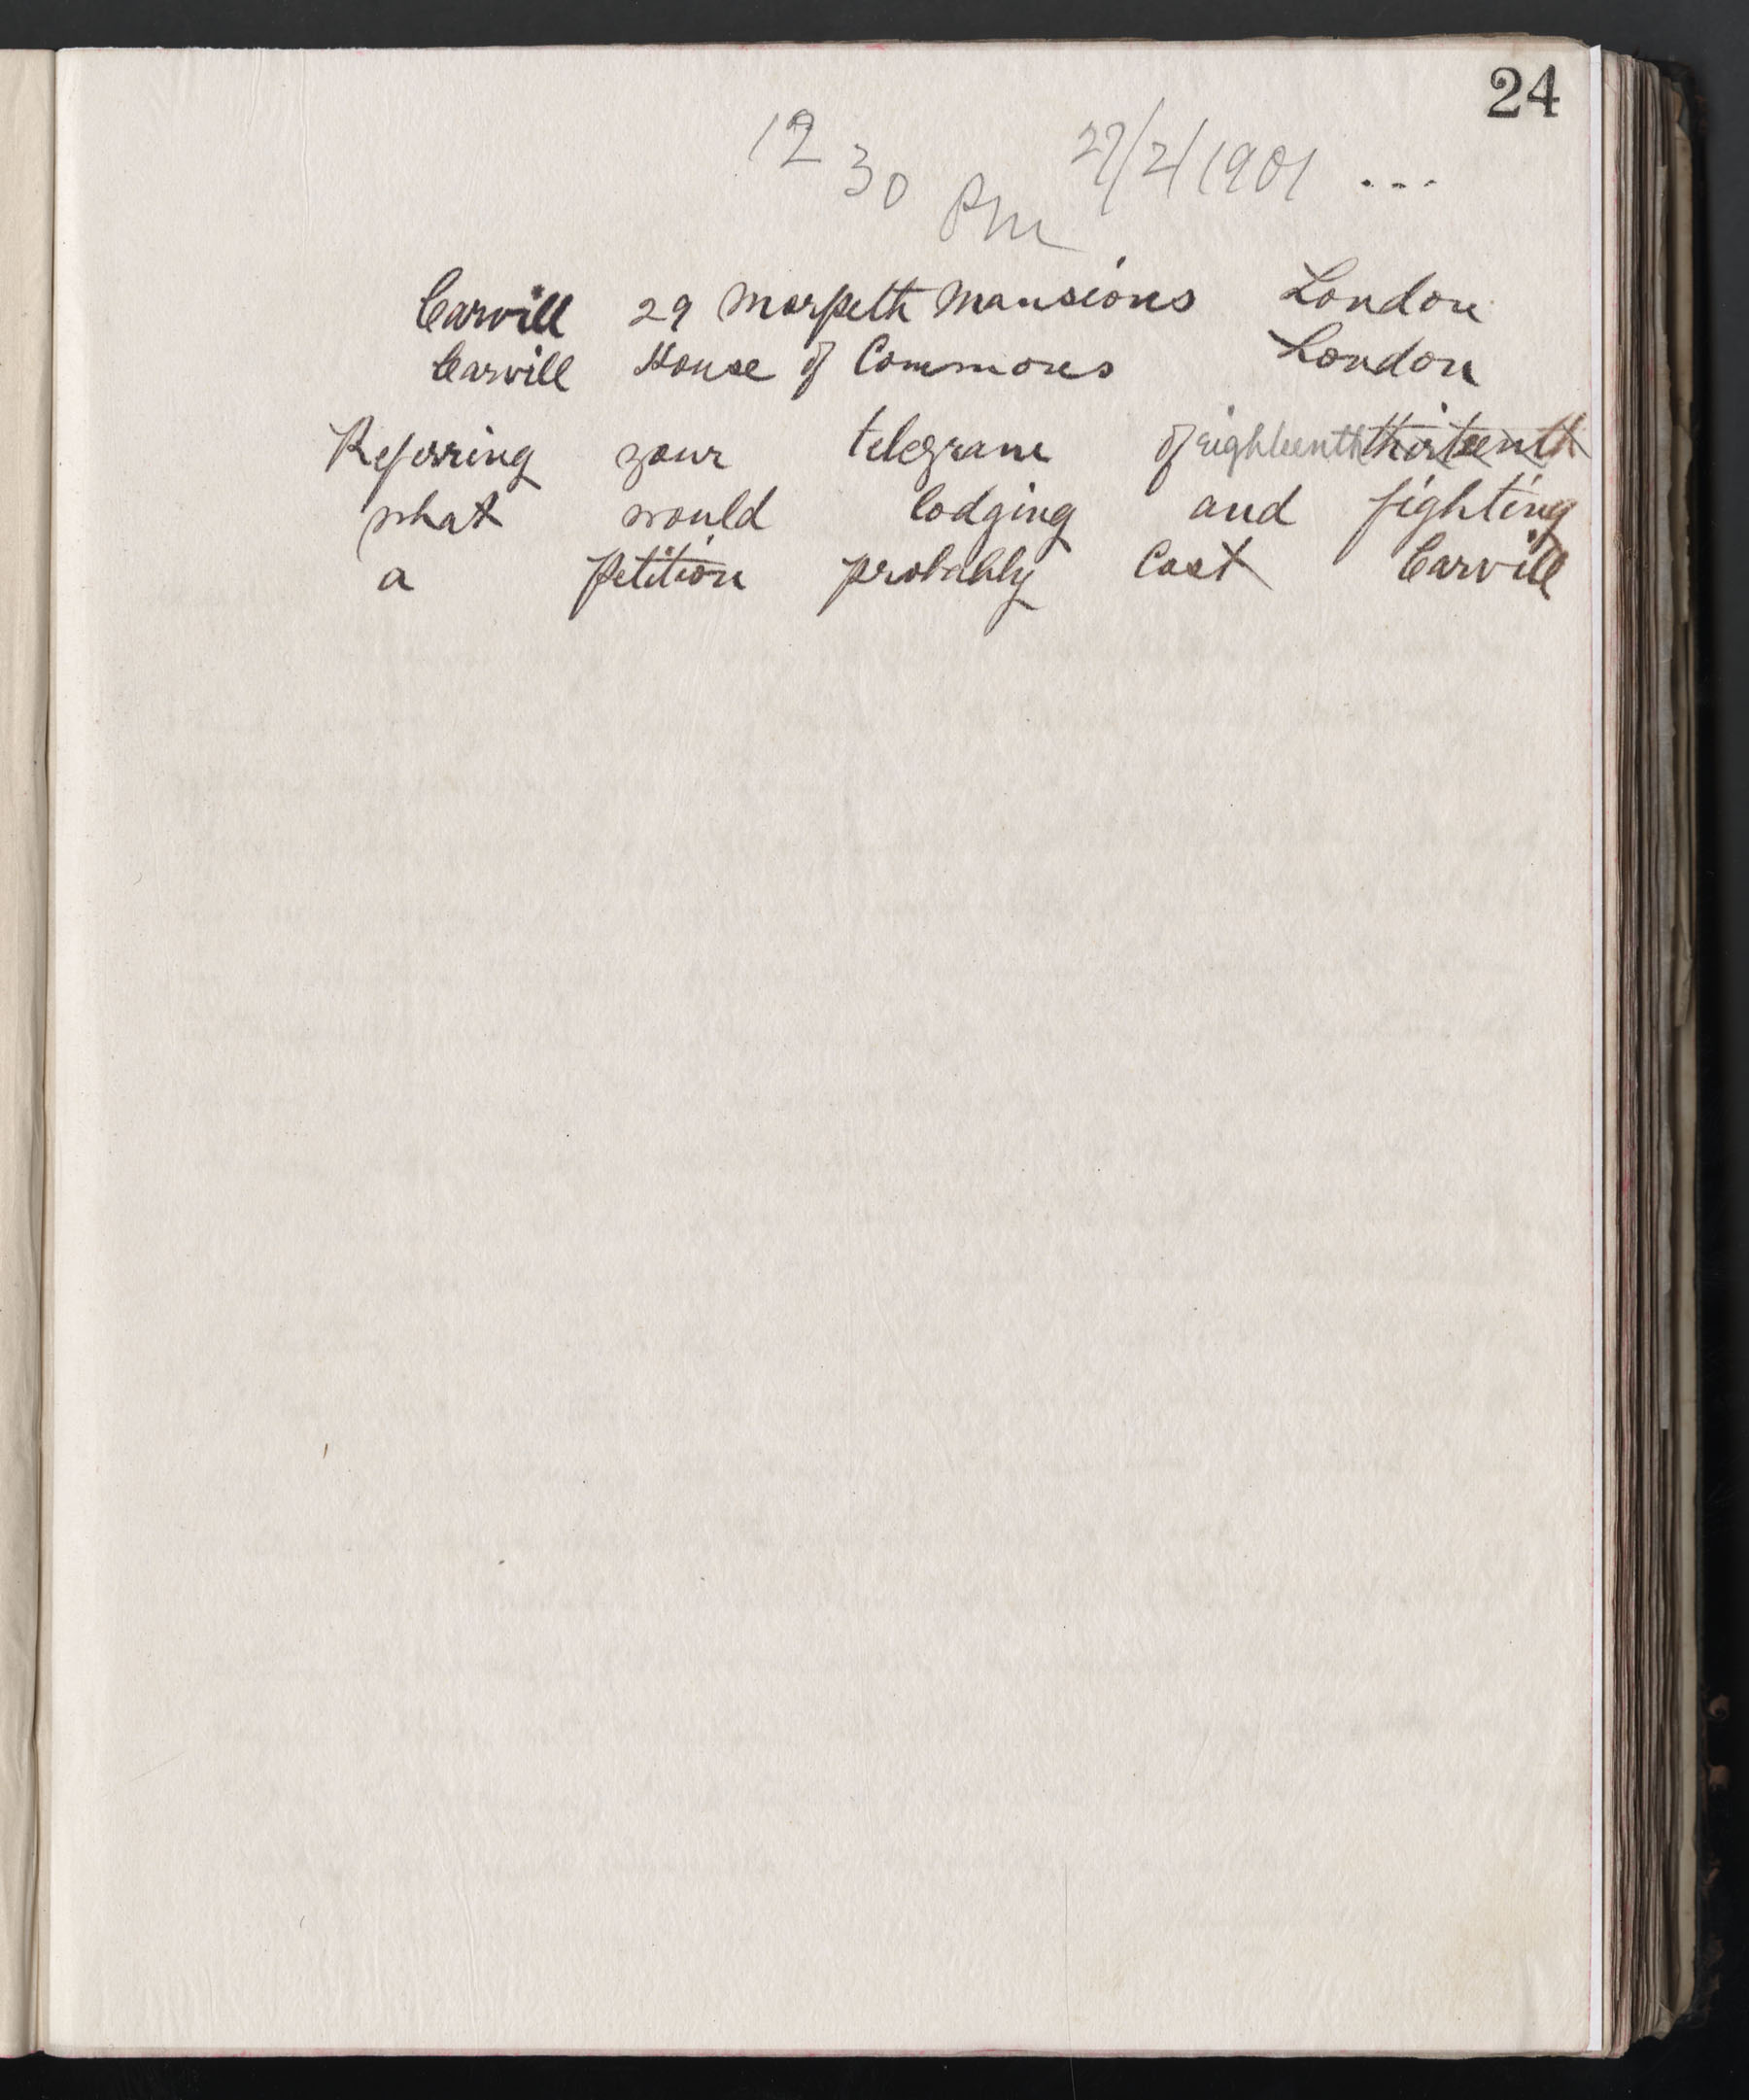 24
12 30 PM 27/2/1901 ...
Carvill 29 Morpeth Mansions London
Carvill House of Commons London
Referring your telegram of eighteenth thirteenth
what would lodging and fighting
a petition probably Cost Carvill